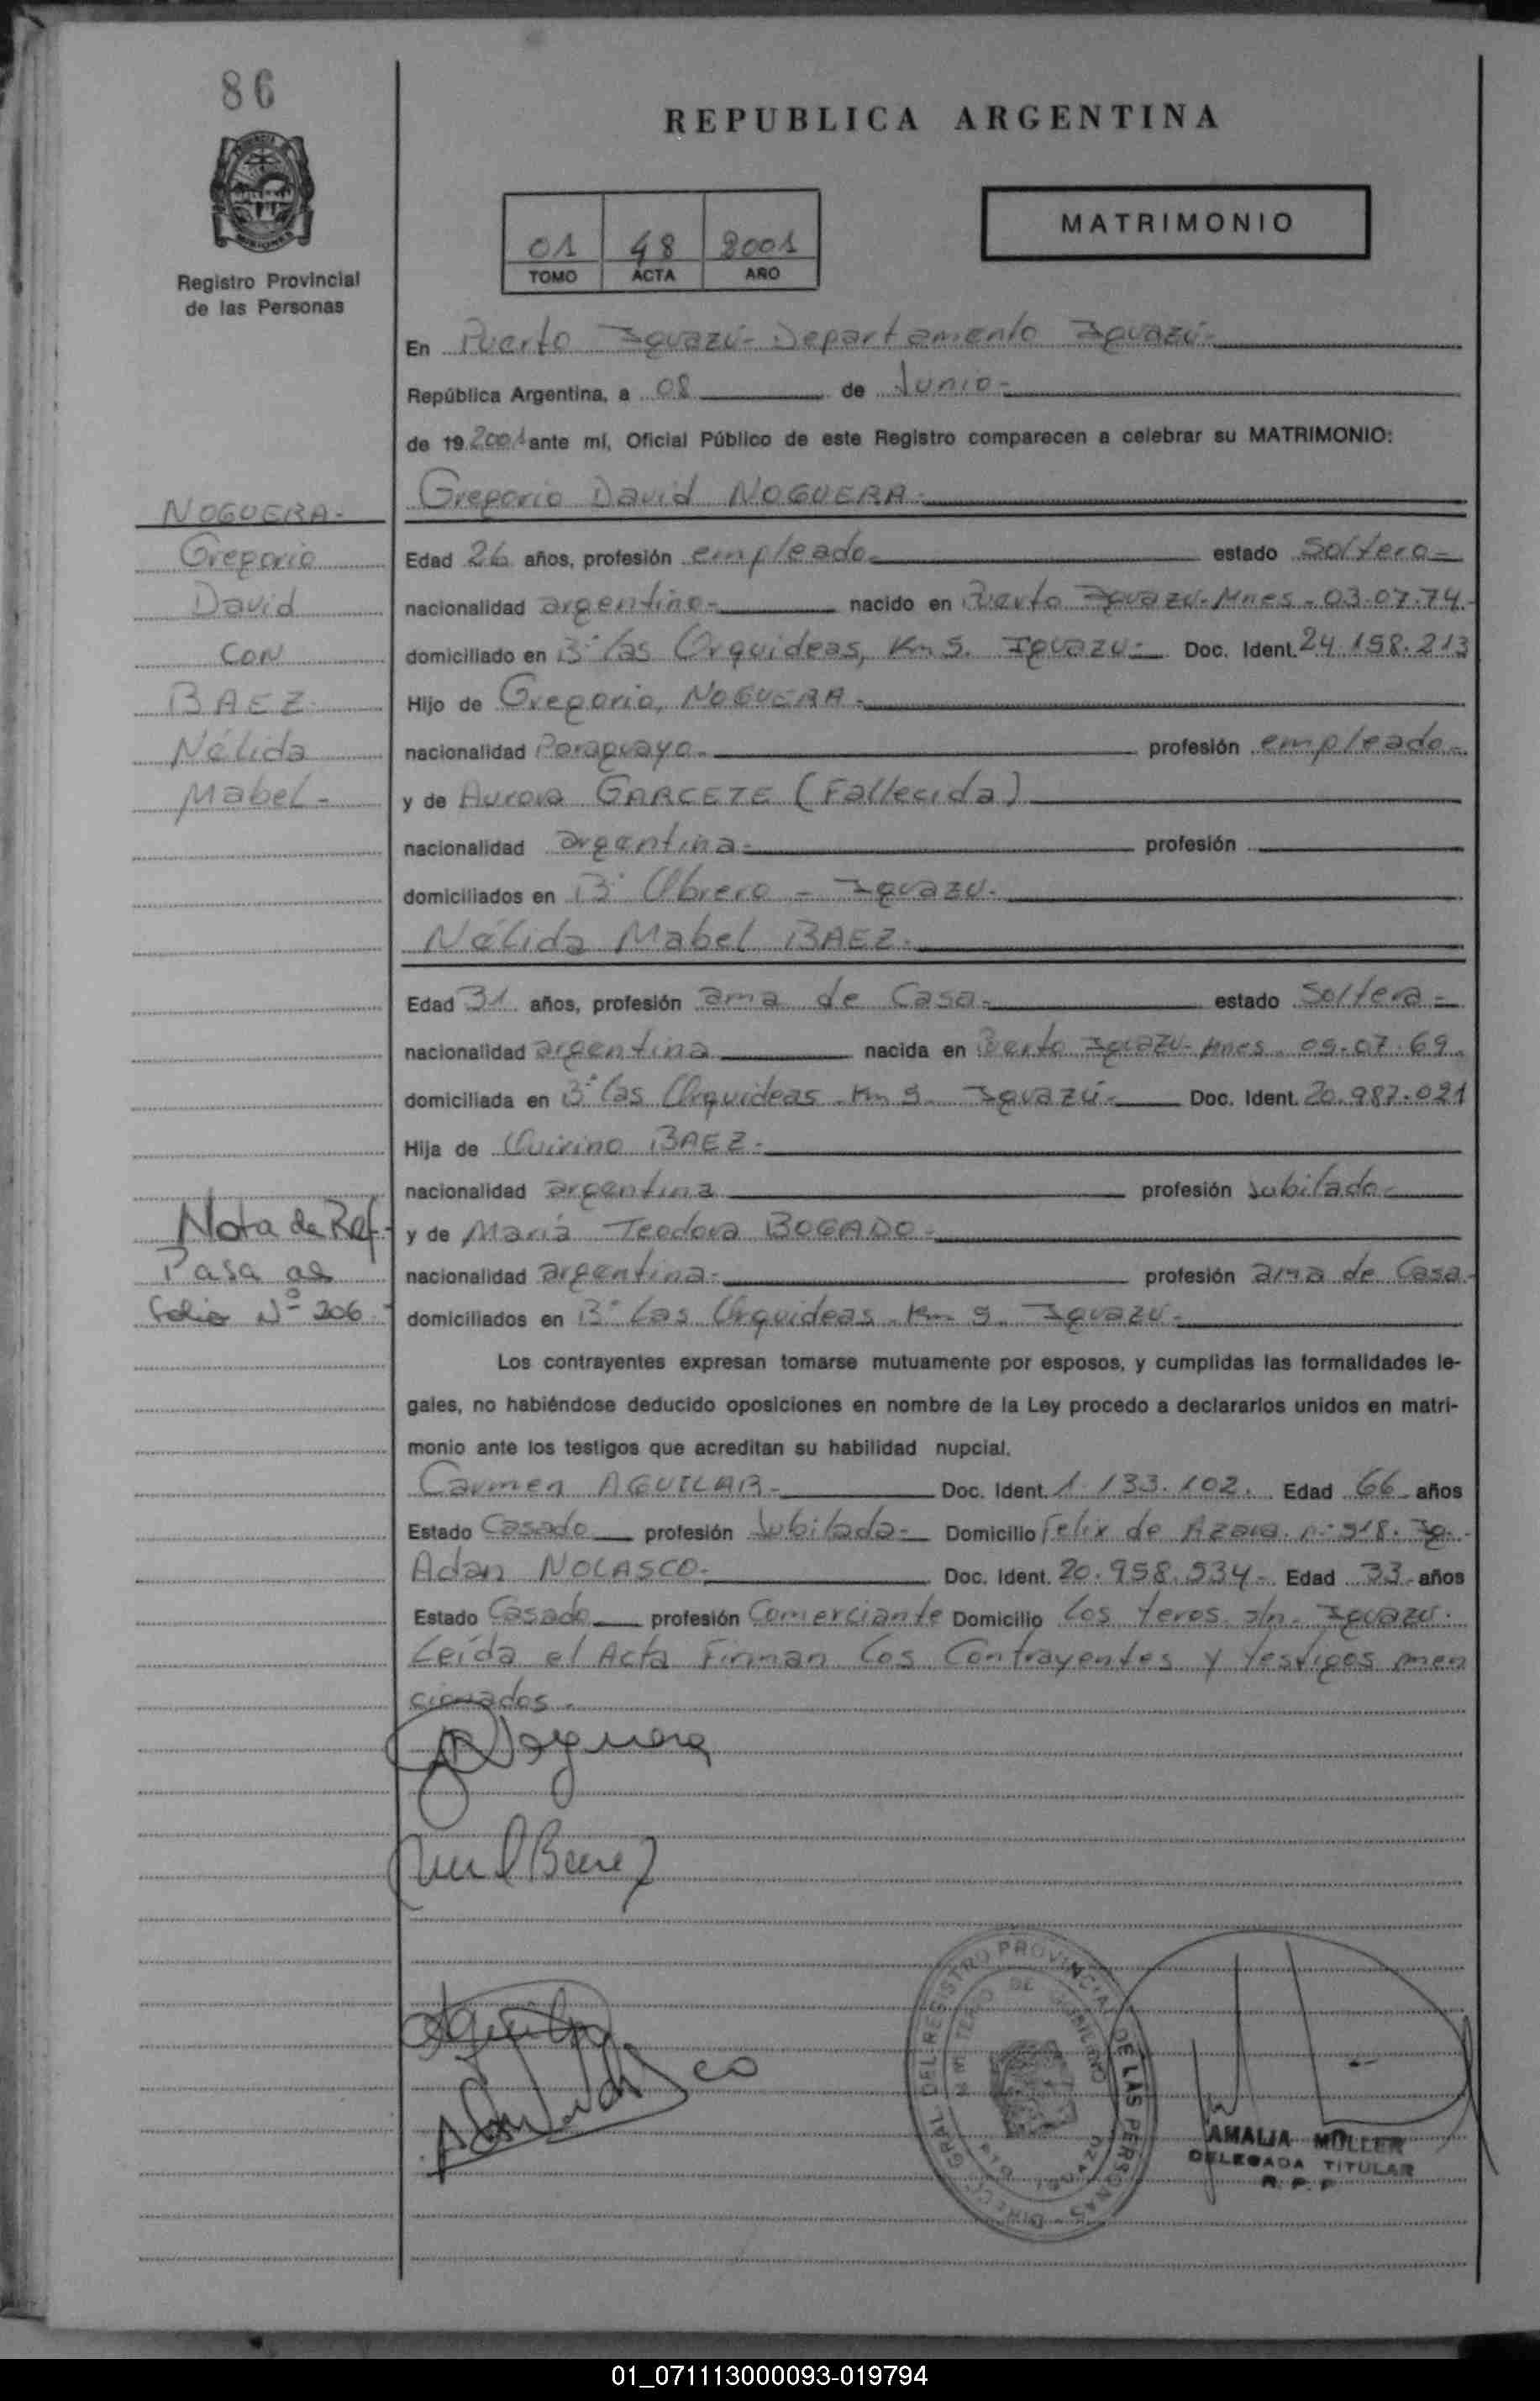 86
REPUBLICA ARGENTINA
MISIONES
Registro Provincial
de las Personas
01 48 2001
TOMO ACTA AÑO
MATRIMONIO
En Puerto Iguazú- Departamento Iguazú-
República Argentina, a 08 de Junio-
de 19 2001 ante mí, Oficial Público de este Registro comparecen a celebrar su MATRIMONIO:
Gregorio David NOGUERA-
NOGUERA-
Gregorio
David
CON
BAEZ
Nélida
Mabel-
Edad 26 años, profesión empleado- estado Soltero-
nacionalidad argentino- nacido en Puerto Iguazú-Mnes - 03.07.74.-
domiciliado en B° las Orquideas, Km 9. Iguazú- Doc. Ident. 24.158.213
Hijo de Gregorio, NOGUERA-
nacionalidad Paraguayo- profesión empleado-
y de Aurora GARCETE (Fallecida)
nacionalidad argentina- profesión
domiciliados en B° Obrero - Iguazú-
Nélida Mabel BAEZ-
Edad 31 años, profesión ama de Casa- estado Soltera-
nacionalidad argentina nacida en Puerto Iguazú- Mnes - 09.07.69.
domiciliada en B° las Orquideas Km 9. Iguazú- Doc. Ident. 20.987.021
Hija de Quirino BAEZ-
nacionalidad argentina profesión Jubilado-
y de María Teodora BOGADO-
nacionalidad argentina- profesión ama de Casa-
domiciliados en B° las Orquideas Km 9 Iguazú-
Nota de Ref-
Pasa al
folio N° 206-
Los contrayentes expresan tomarse mutuamente por esposos, y cumplidas las formalidades le-
gales, no habiéndose deducido oposiciones en nombre de la Ley procedo a declararlos unidos en matri-
monio ante los testigos que acreditan su habilidad nupcial.
Carmen AGUILAR- Doc. Ident. 1.133.102. Edad 66 años
Estado Casado profesión Jubilada- Domicilio Felix de Azara n° 918. Ig.-
Adan NOLASCO- Doc. Ident. 20.958.534- Edad 33 años
Estado Casado profesión Comerciante Domicilio los teros s/n- Iguazú-
Leída el Acta Firman los Contrayentes y testigos men
cionados.
Noguera
Baez
Aguilar
Nolasco
DIRECC. GRAL. DEL REGISTRO PROVINCIAL DE LAS PERSONAS
MINISTERIO DE GOBIERNO
AMALIA MÜLLER
DELEGADA TITULAR
R. P. P.
01_071113000093-019794